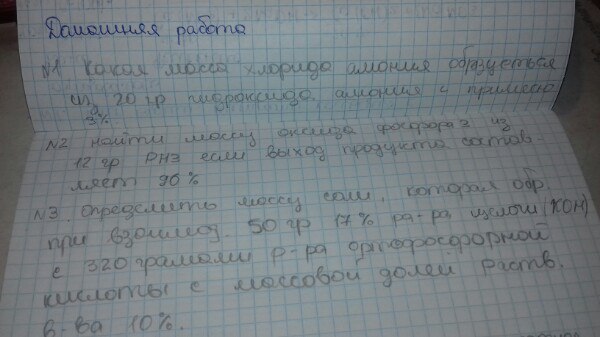 Домашняя работа
N1 Какая масса хлорида амония образуеться
из 20 гр гидроксида амония с примесью
3%
N2 найти массу оксида фосфора 3 из
12 гр PH3 если выход продукта состав-
ляет 96%
N3. Определить массу соли, которая обр.
при взаимод. 50 гр 17% ра-ра щелочи (KOH)
с 320 грамами р-ра ортофосфорной
кислоты с массовой долей раств.
в-ва 10%.